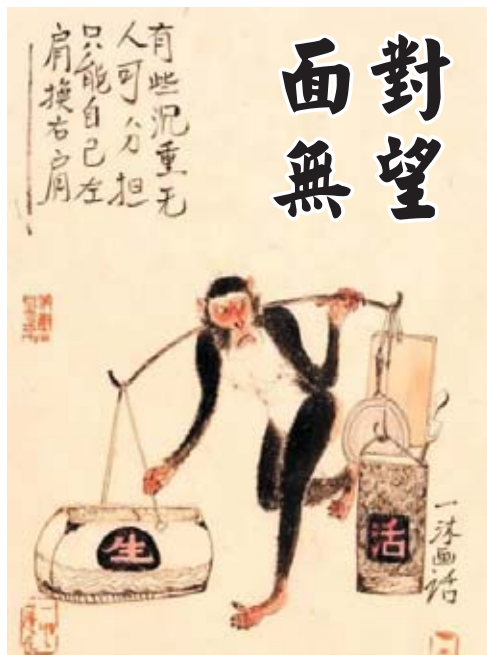 對望
面無
有些沉重无
人可分担
只能自己左
肩换右肩
生
活
一沐画话